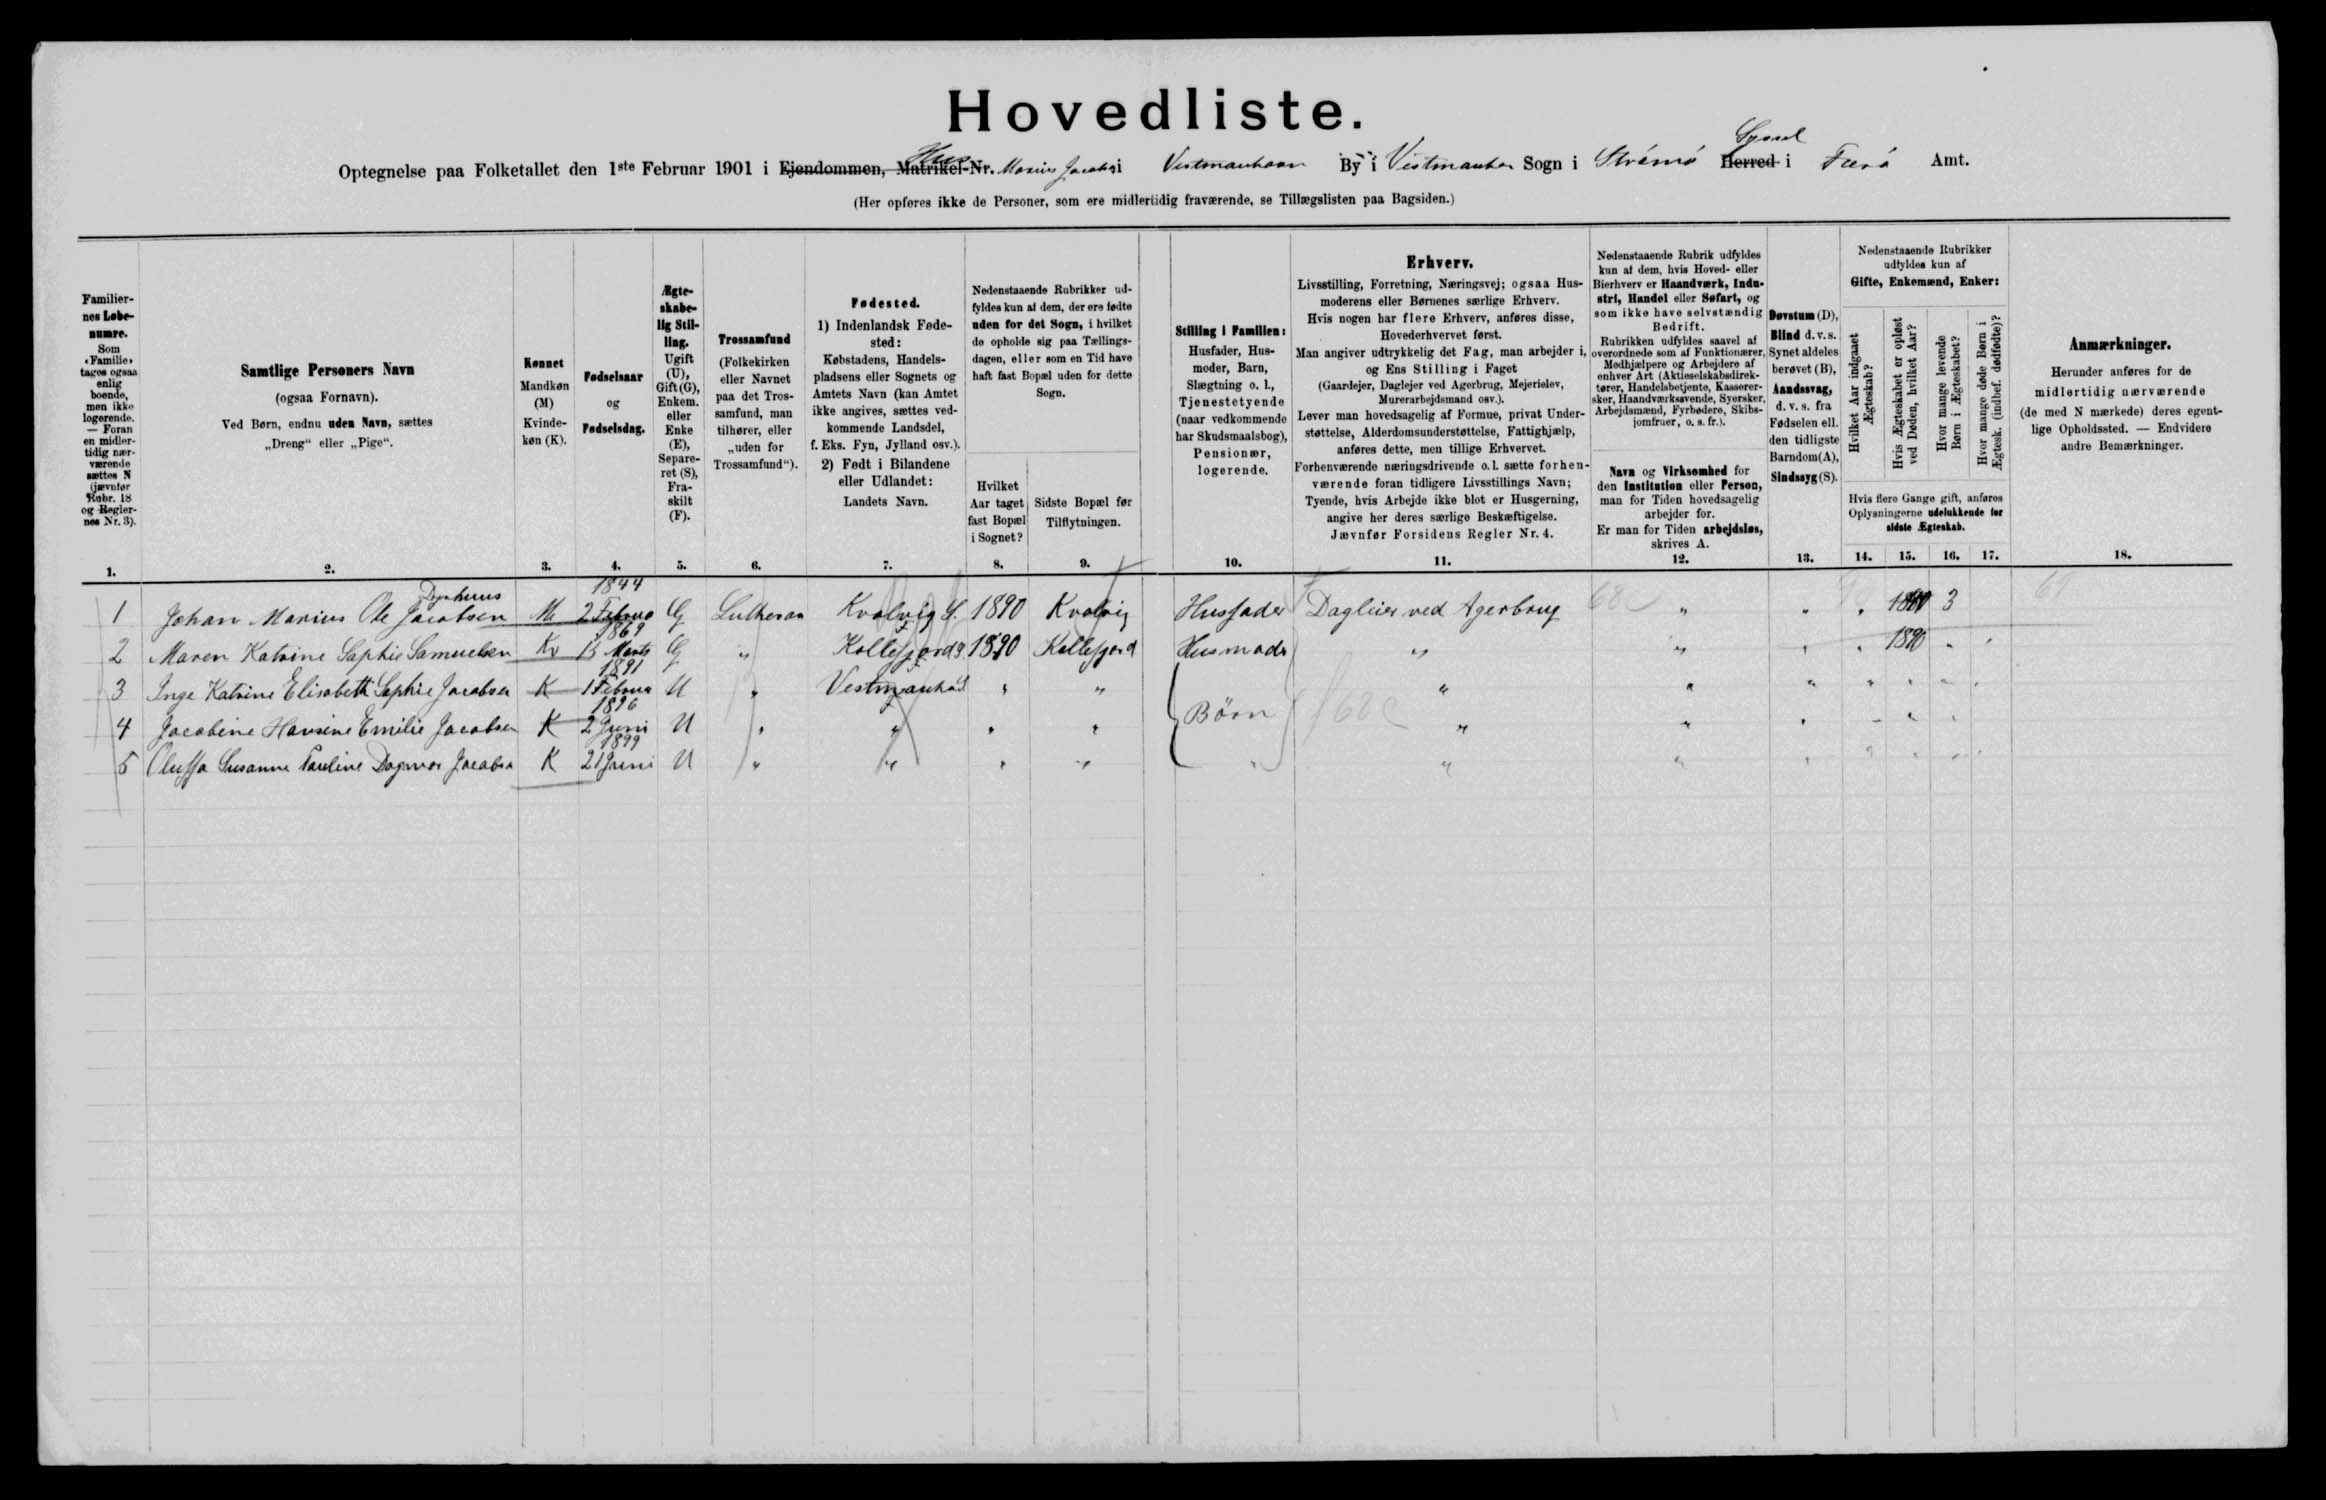 Hovedliste.
Optegnelse paa Folketallet den 1ste Februar 1901 i Ejendommen, Matrikel-Nr. Marius Jacobs i Vestmanhavn By i Vestmanhav Sogn i Strømø Herred i Færø Amt.
Hus
Syssel
(Her opføres ikke de Personer, som ere midlertidig fraværende, se Tillægslisten paa Bagsiden.)
Familiernes Løbenumre.
Som «Familie» tages ogsaa enlig boende, men ikke logerende. — Foran en midlertidig nærværende sættes N (jævnfør Rubr. 18 og Reglernes Nr. 3).
Samtlige Personers Navn
(ogsaa Fornavn).
Ved Børn, endnu uden Navn, sættes
„Dreng“ eller „Pige“.
Kønnet
Mandkøn (M)
Kvindekøn (K).
Fødselsaar
og
Fødselsdag.
Ægteskabelig Stilling.
Ugift (U), Gift (G), Enkem. eller Enke (E), Separeret (S), Fraskilt (F).
Trossamfund
(Folkekirken eller Navnet paa det Trossamfund, man tilhører, eller „uden for Trossamfund“).
Fødested.
1) Indenlandsk Fødested:
Købstadens, Handelspladsens eller Sognets og Amtets Navn (kan Amtet ikke angives, sættes vedkommende Landsdel, f. Eks. Fyn, Jylland osv.).
2) Født i Bilandene eller Udlandet:
Landets Navn.
Nedenstaaende Rubrikker udfyldes kun af dem, der ere fødte uden for det Sogn, i hvilket de opholde sig paa Tællingsdagen, eller som en Tid have haft fast Bopæl uden for dette Sogn.
Hvilket Aar taget fast Bopæl i Sognet?
Sidste Bopæl før Tilflytningen.
Stilling i Familien:
Husfader, Husmoder, Barn, Slægtning o. l., Tjenestetyende (naar vedkommende har Skudsmaalsbog), Pensionær, logerende.
Erhverv.
Livsstilling, Forretning, Næringsvej; ogsaa Husmoderens eller Børnenes særlige Erhverv.
Hvis nogen har flere Erhverv, anføres disse, Hovederhvervet først.
Man angiver udtrykkelig det Fag, man arbejder i, og Ens Stilling i Faget
(Gaardejer, Daglejer ved Agerbrug, Mejerielev, Murerarbejdsmand osv.).
Lever man hovedsagelig af Formue, privat Understøttelse, Alderdomsunderstøttelse, Fattighjælp, anføres dette, men tillige Erhvervet.
Forhenværende næringsdrivende o. l. sætte forhenværende foran tidligere Livsstillings Navn;
Tyende, hvis Arbejde ikke blot er Husgerning, angive her deres særlige Beskæftigelse.
Jævnfør Forsidens Regler Nr. 4.
Nedenstaaende Rubrik udfyldes kun af dem, hvis Hoved- eller Bierhverv er Haandværk, Industri, Handel eller Søfart, og som ikke have selvstændig Bedrift.
Rubrikken udfyldes saavel af overordnede som af Funktionærer, Medhjælpere og Arbejdere af enhver Art (Aktieselskabsdirektører, Handelsbetjente, Kasserersker, Haandværkssvende, Syersker, Arbejdsmænd, Fyrbødere, Skibsjomfruer, o. s. fr.).
Navn og Virksomhed for den Institution eller Person, man for Tiden hovedsagelig arbejder for.
Er man for Tiden arbejdsløs, skrives A.
Døvstum (D), Blind d. v. s. Synet aldeles berøvet (B), Aandssvag, d. v. s. fra Fødselen ell. den tidligste Barndom (A), Sindssyg (S).
Nedenstaaende Rubrikker udfyldes kun af
Gifte, Enkemænd, Enker:
Hvilket Aar indgaaet Ægteskab?
Hvis Ægteskabet er opløst ved Døden, hvilket Aar?
Hvor mange levende Børn i Ægteskabet?
Hvor mange døde Børn i Ægtesk. (indbef. dødfødte)?
Hvis flere Gange gift, anføres Oplysningerne udelukkende for sidste Ægteskab.
Anmærkninger.
Herunder anføres for de midlertidig nærværende (de med N mærkede) deres egentlige Opholdssted. — Endvidere andre Bemærkninger.
1. 2. 3. 4. 5. 6. 7. 8. 9. 10. 11. 12. 13. 14. 15. 16. 17. 18.
1 Johan Marius Ole Jacobsen M 1844 2 Februa G Lutheran Kvalvig S. 1890 Kvalvig Husfader Dagleier ved Agerbrug 68c " " " 3
2 Maren Katrine Sophie Samuelsen Kv 1869 13 Marts G " Kollefjord S 1890 Kollefjord Husmoder " " " " 1890 "
3 Inge Katrine Elisabeth Sophie Jacobsen K 1891 1 Februa U " Vestmanha S. " " " " " " " " "
4 Jacobine Hansine Emilie Jacobsen K 1896 2 Juni U " " " " Børn 68c " " " " " "
5 Oluffa Susanne Pauline Dagmar Jacobsn K 1899 21 Juni U " " " " " " " " " " "